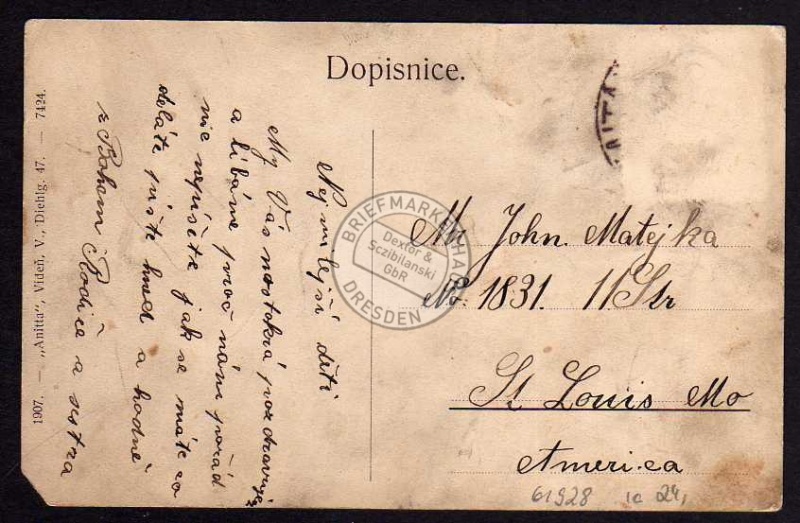 Dopisnice.
1907. — „Anitta", Vídeň, V., Diehlg. 47. — 7424.
Nejmilejší děti
My Vás nastokrá pozdravuje
a líbáme proč nám pořád
nic nepíšete jak se máte co
deláte pište hned a hodně
z Bohem Rodiče a sestra
Mr. John. Matejka
No. 1831. 11 Str
St. Louis Mo
America
61928 10 24,
BRIEFMARKENHAUS
Dextor &
Sczibilanski
GbR
DRESDEN